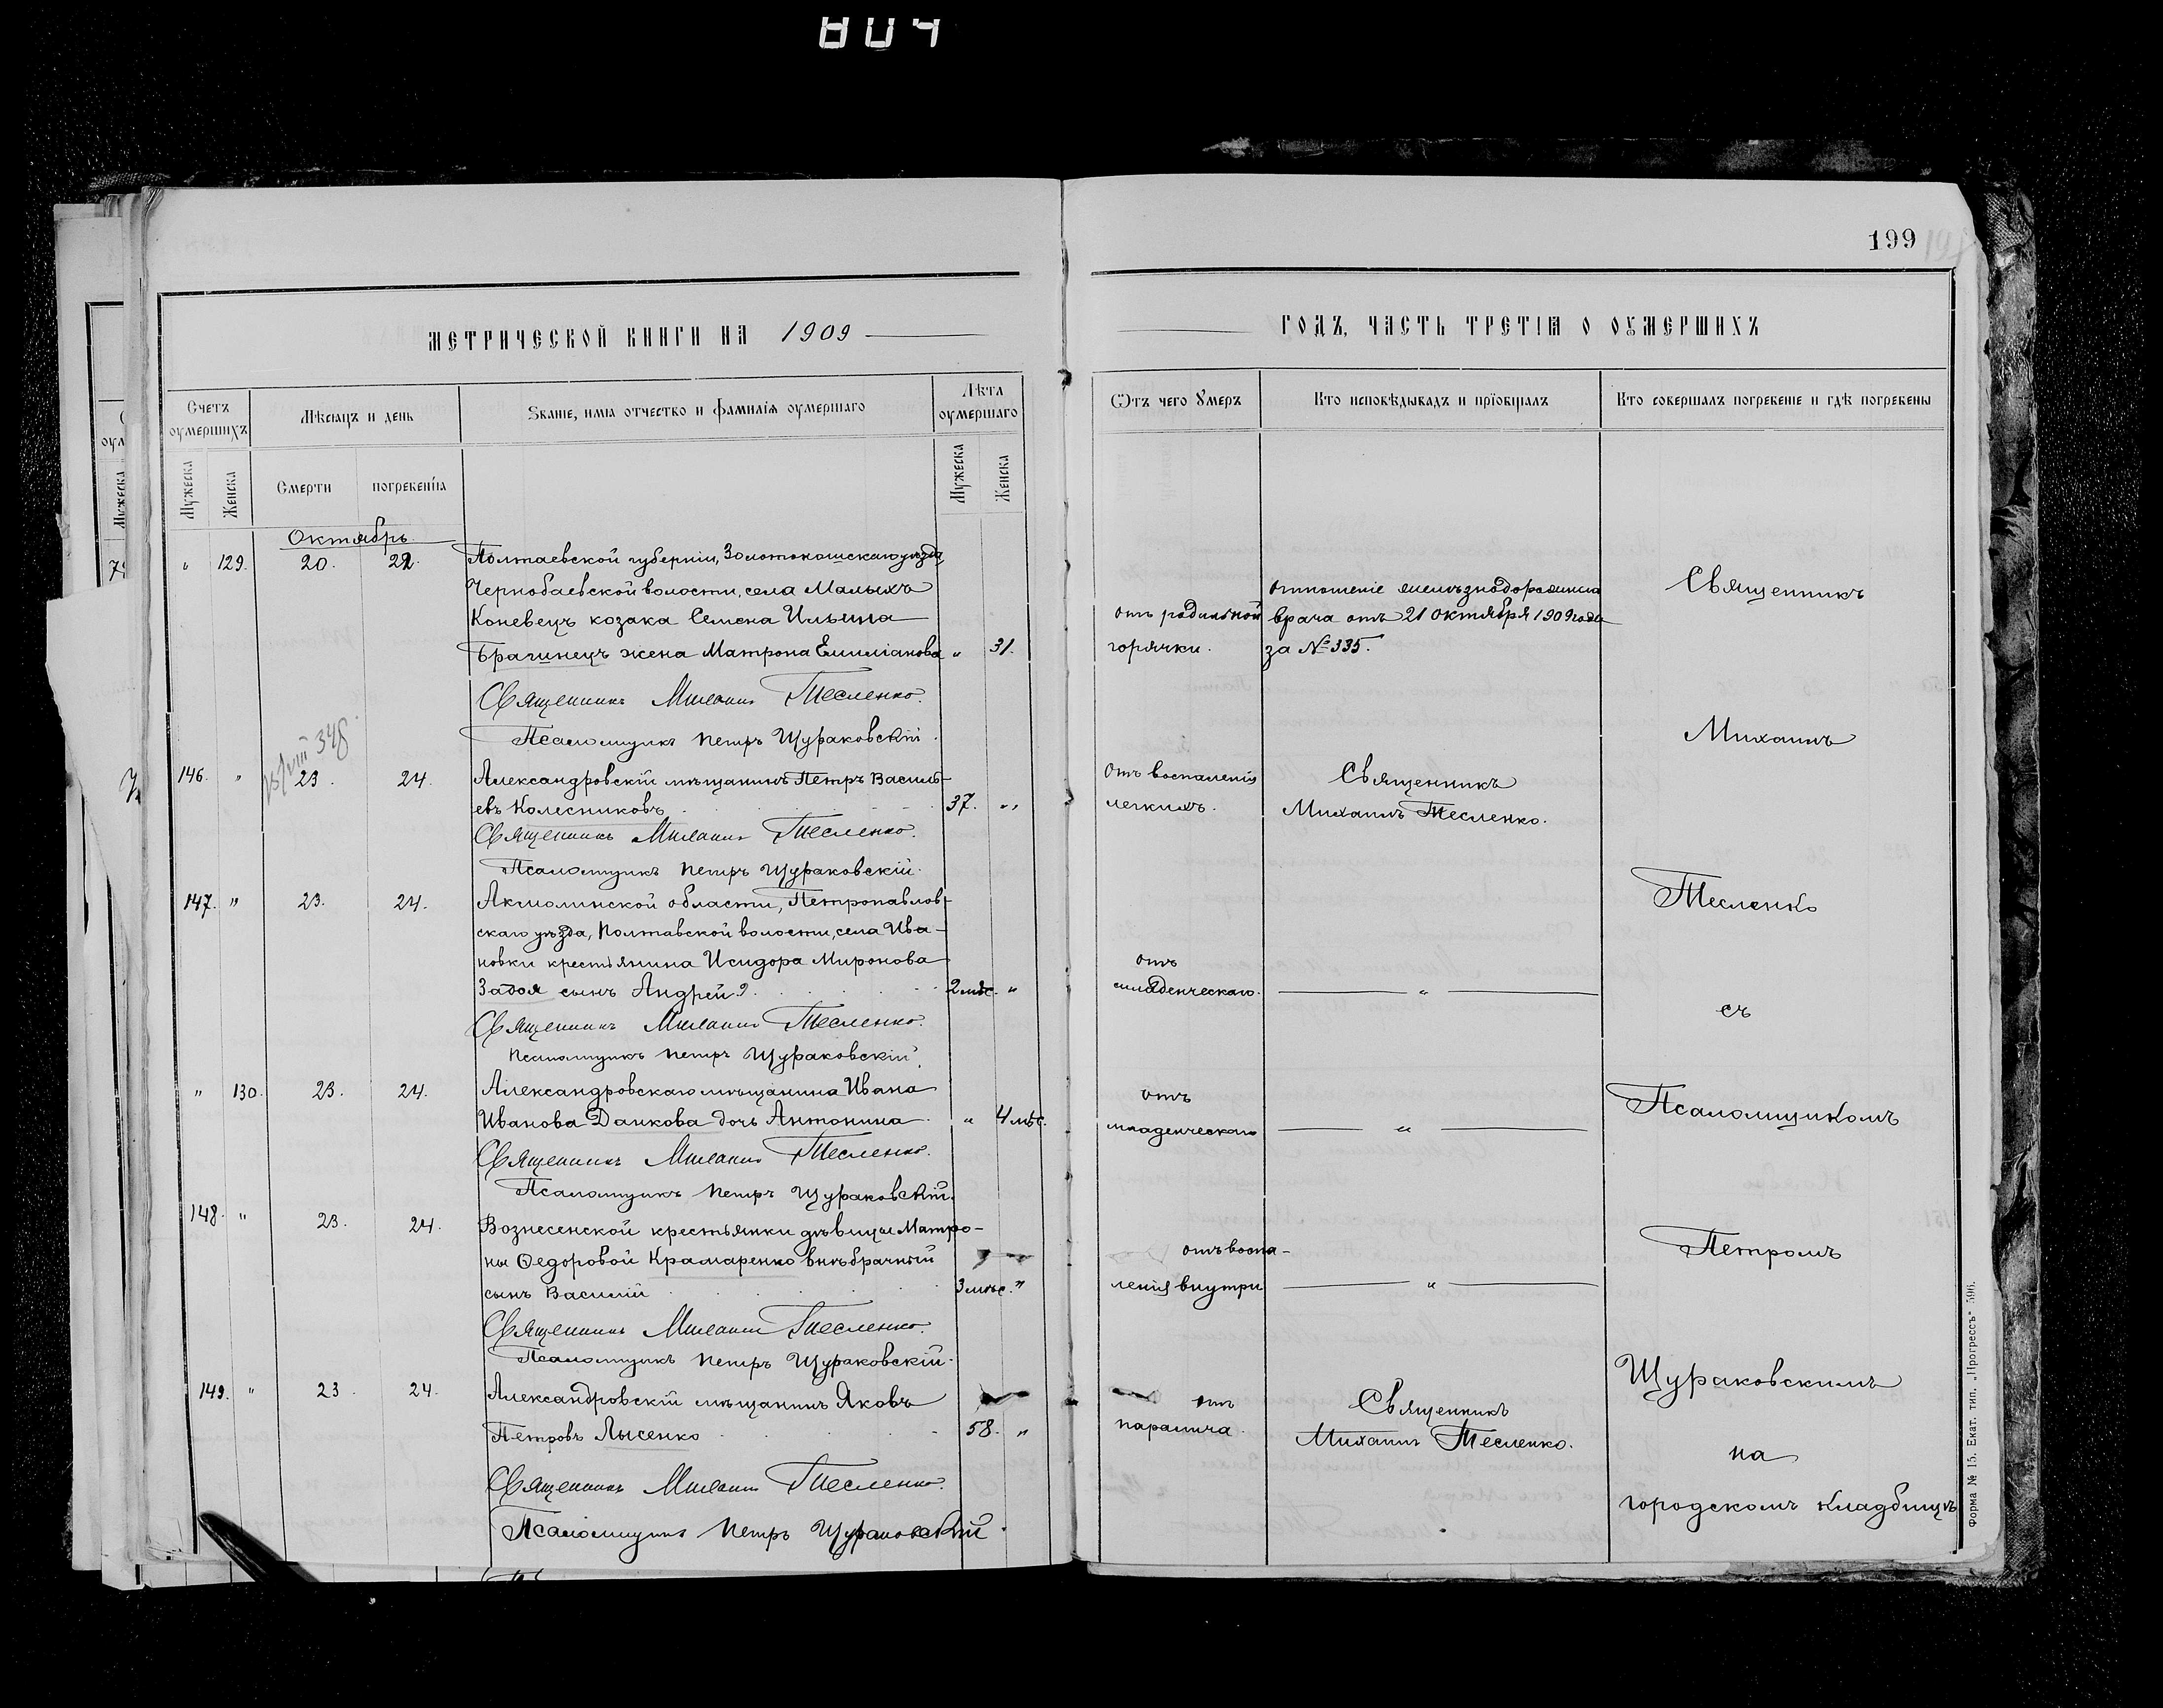 804
199
МЕТРИЧЕСКОЙ КНИГИ НА 1909
ГОДЪ, ЧАСТЬ ТРЕТІѦ О ОУМЕРШИХЪ
Счетъ оумершихъ
Мѣсѧцъ и день
Званіе, имѧ отчество и фамиліѧ оумершаго
Лѣта оумершаго
Ѿтъ чего Ȣмеръ
Кто исповѣдывалъ и прїобщалъ
Кто совершалъ погребеніе и гдѣ погребены
Мужеска
Женска
Смерти
погребеніѧ
Мужеска
Женска
Октябрь
" 129. 20. 22. Полтаевской губерніи, Золотоношскаго уѣзда,
Чернобаевской волости, села Малыхъ
Коневецъ козака Семена Ильина
Брагинецъ жена Матрона Емиліанова " 31.
отъ родильной
горячки.
отношеніе желѣзнодорожнаго
врача отъ 21 октября 1909 года
за № 335.
Священникъ Михаилъ Тесленко.
Псаломщикъ Петръ Щураковскій.
15/VIII 348.
146. " 23. 24. Александровскій мѣщанинъ Петръ Василь-
евъ Колесниковъ 37. "
отъ воспаленія
легкихъ.
Священникъ
Михаилъ Тесленко.
Священникъ Михаилъ Тесленко.
Псаломщикъ Петръ Щураковскій.
147. " 23. 24. Акмолинской области, Петропавлов-
скаго уѣзда, Полтавской волости, села Ива-
новки крестьянина Исидора Миронова
Задоя сынъ Андрей 2 мѣс. "
отъ
младенческаго. "
Священникъ Михаилъ Тесленко.
Псаломщикъ Петръ Щураковскій.
" 130. 23. 24. Александровскаго мѣщанина Ивана
Иванова Данкова дочь Антонина " 4 мѣс.
отъ
младенческаго "
Священникъ Михаилъ Тесленко.
Псаломщикъ Петръ Щураковскій.
148. " 23. 24. Вознесенской крестьянки дѣвицы Матро-
ны Ѳедоровой Крамаренко внѣбрачный
сынъ Василій 3 мѣс. "
отъ воспа-
ленія внутри "
Священникъ Михаилъ Тесленко.
Псаломщикъ Петръ Щураковскій.
149. " 23. 24. Александровскій мѣщанинъ Яковъ
Петровъ Лысенко 58. "
отъ
паралича.
Священникъ
Михаилъ Тесленко.
Священникъ Михаилъ Тесленко.
Псаломщикъ Петръ Щураковскій.
Священникъ
Михаилъ
Тесленко
съ
Псаломщикомъ
Петромъ
Щураковскимъ
на
городскомъ кладбищѣ
Форма № 15. Екат. тип. „Прогрессъ" 596.